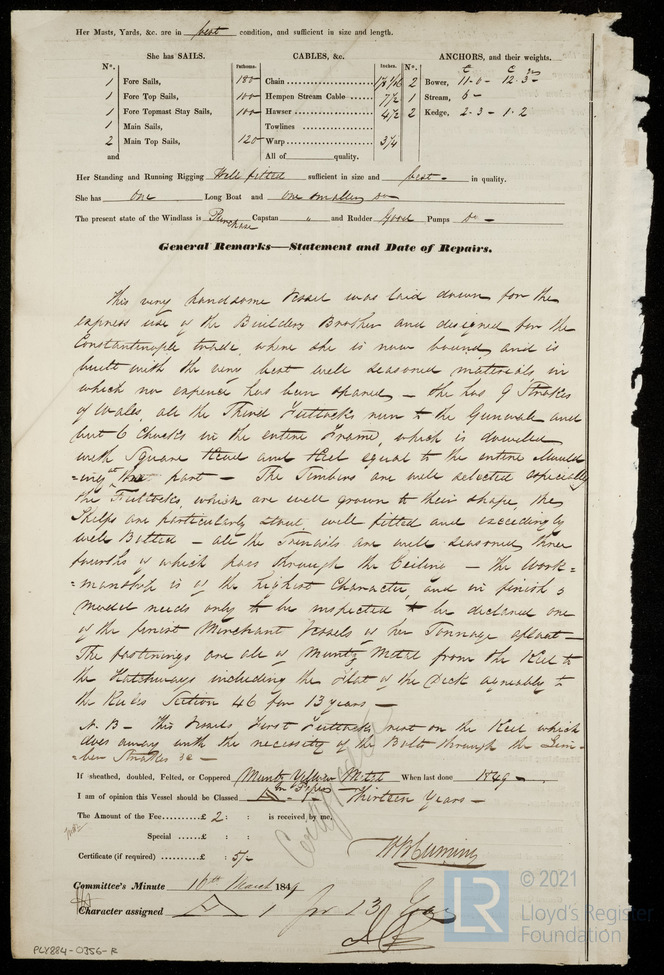 Her Masts, Yards, &c. are in best condition, and sufficient in size and length.
She has SAILS. CABLES, &c. ANCHORS, and their weights.
N°. Fathoms. Inches. N°.
1 Fore Sails, 180 Chain 1 7/16 2 Bower, 11-0- 12-3-
1 Fore Top Sails, 100 Hempen Stream Cable 7½ 1 Stream, 6-
1 Fore Topmast Stay Sails, 100 Hawser 4½ 2 Kedge, 2-3- 1-2
1 Main Sails, Towlines
2 Main Top Sails, 120 Warp 3¼
and All of quality.
Her Standing and Running Rigging Well fitted sufficient in size and best - in quality.
She has one Long Boat and one smaller Do
The present state of the Windlass is Purchase Capstan " and Rudder Good Pumps Do -
General Remarks—Statement and Date of Repairs.
This very handsome Vessel was laid down for the
express use of the Builders Brother and designed for the
Constantinople trade, where she is now bound, and is
built with the very best well seasoned materials in
which no expence has been spared - She has 9 Strakes
of Wales, all the Third Futtocks run to the Gunwale and
but 6 Chocks in the entire Frame, which is dowelled
with Square Head and Heel equal to the entire Mould
=ing at that part - The Timbers are well selected especially
the Futtocks, which are well grown to their shape, the
Shelfs are particularly stout, well fitted and exceedingly
well Bolted - all the Trenails are well seasoned three
fourths of which pass through the Ceiling - The Work=
=manship is of the highest Character, and in finish &
model needs only to be inspected to be declared one
of the finest Merchant Vessels of her Tonnage afloat -
The fastenings are all of Muntz Metal from the Keel to
the Hatchways including the flat of the Deck agreeably to
the Rules Section 46 for 13 years -
N.B - This Vessels First Futtocks meet on the Keel which
does away with the necessity of the Bolts through the Lim-
-ber Strakes &c -
If sheathed, doubled, Felted, or Coppered Muntz Yellow Metal When last done 1849 -
I am of opinion this Vessel should be Classed A - 1 - Thirteen Years -
The Amount of the Fee.......£ 2 : : is received by me,
Special ......£ : :
Certificate (if required) ......£ : 5/-
Certificate
W B Cuming
Committee's Minute 16th March 1849
Character assigned A 1 for 13 Years
PLY884-0356-R
LR
© 2021
Lloyd's Register
Foundation